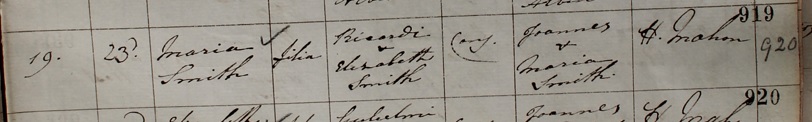 919
19. 23. Maria Smith filia Ricardi & Elizabeth Smith Conj. Joannes & Maria Smith H. Mahon 920
920
Gulielmi Joannes H.